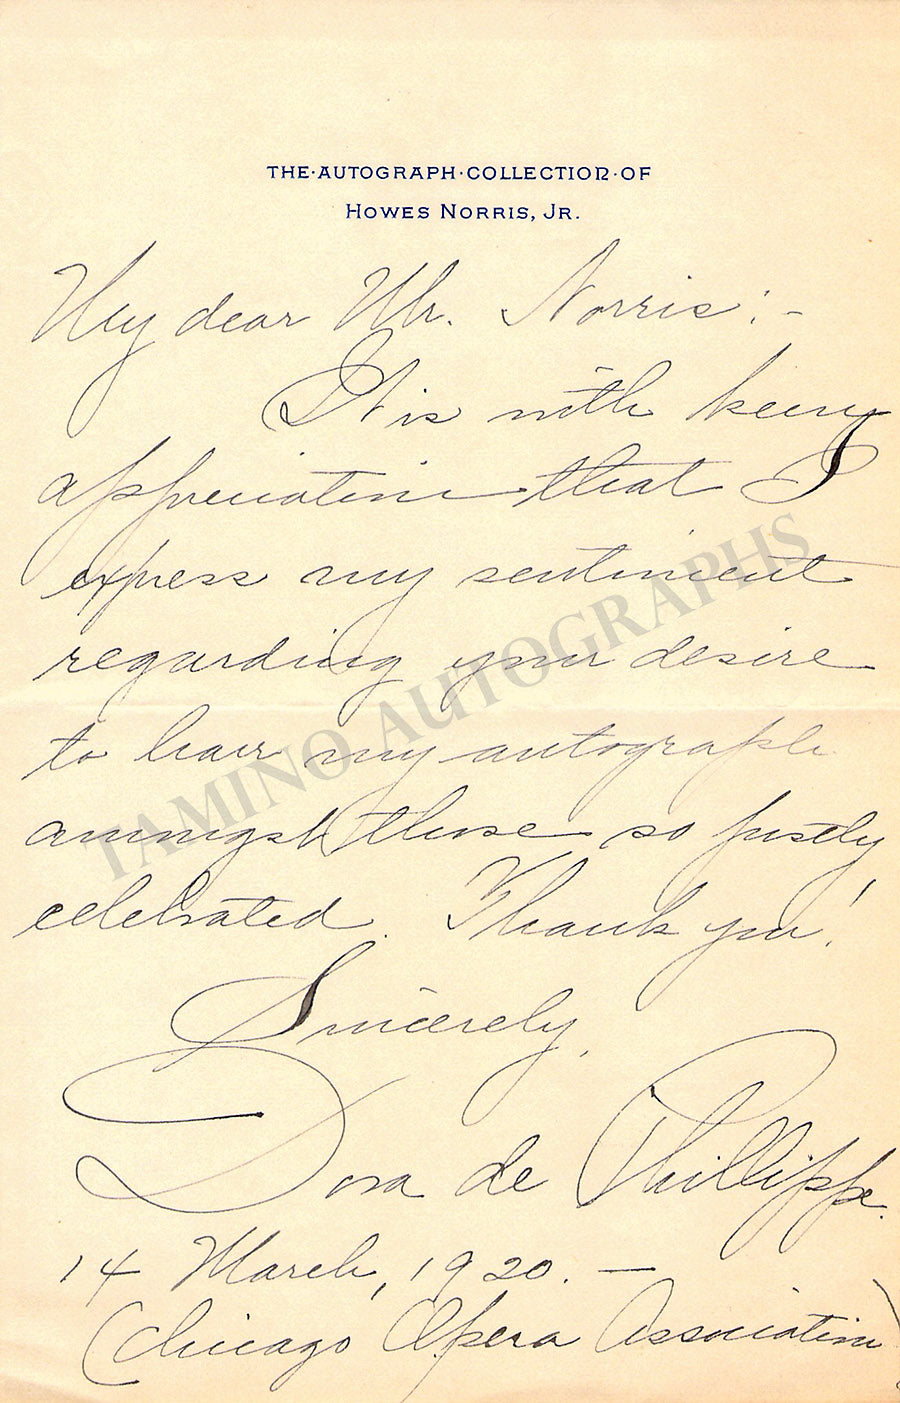 THE·AUTOGRAPH·COLLECTION·OF
HOWES NORRIS, JR.
My dear Mr. Norris:-
It is with keen
appreciation that I
express my sentiment
regarding your desire
to have my autograph
amongst those so justly
celebrated. Thank you!
Sincerely,
Dora de Phillippe.
14 March, 1920. —
(Chicago Opera Association)
TAMINO AUTOGRAPHS